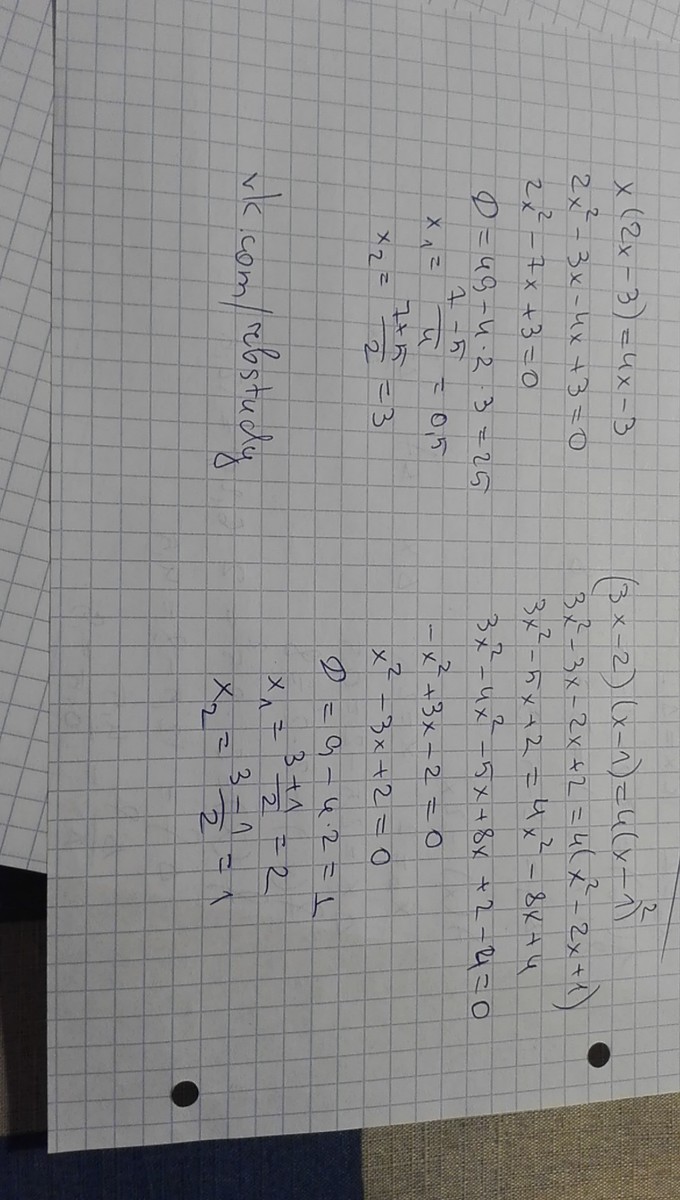 x(2x-3)=4x-3
2x²-3x-4x+3=0
2x²-7x+3=0
D=49-4·2·3=25
x₁=(7-5)/4=0,5
x₂=(7+5)/2=3
vk.com/rbstudy
(3x-2)(x-1)=4(x-1)²
3x²-3x-2x+2=4(x²-2x+1)
3x²-5x+2=4x²-8x+4
3x²-4x²-5x+8x+2-4=0
-x²+3x-2=0
x²-3x+2=0
D=9-4·2=1
x₁=(3+1)/2=2
x₂=(3-1)/2=1